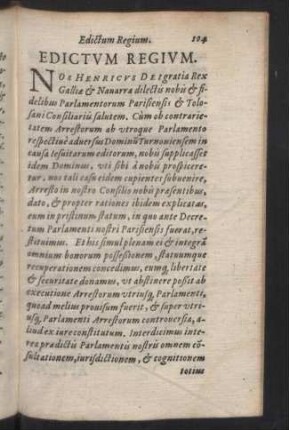 Edictum Regium. 114
EDICTVM REGIVM.
NOS HENRICVS DEI gratia Rex
Galliæ & Nauarra dilectis nobis & fi-
delibus Parlamentorum Parisiensis & Tolo-
sani Consiliariis salutem. Cùm ob contrarie-
tatem Arrestorum ab vtroque Parlamento
respectiuè aduersus Dominũ Turnoniensem in
causa Iesuitarum editorum, nobis supplicasset
idem Dominus, vti sibi à nobis prospicere-
tur, nos tali casu eidem cupientes subuenire,
Arresto in nostro Consilio nobis præsentibus,
dato, & propter rationes ibidem explicatas,
eum in pristinum statum, in quo ante Decre-
tum Parlamenti nostri Parisiensis fuerat, re-
stituimus. Et his simul plenam ei & integrã
omnium bonorum possessionem, statuumque
recuperationem concedimus, eumq́, libertate
& securitate donamus, vt abstinere possit ab
executione Arrestorum vtriusq́, Parlamenti,
quoad melius prouisum fuerit, & super vtri-
usq́, Parlamenti Arrestorum controuersia, a-
liud ex iure constitutum. Interdicimus inte-
reo prædictis Parlamentis nostris omnem cõ-
sultationem, iurisdictionem, & cognitionem
totius